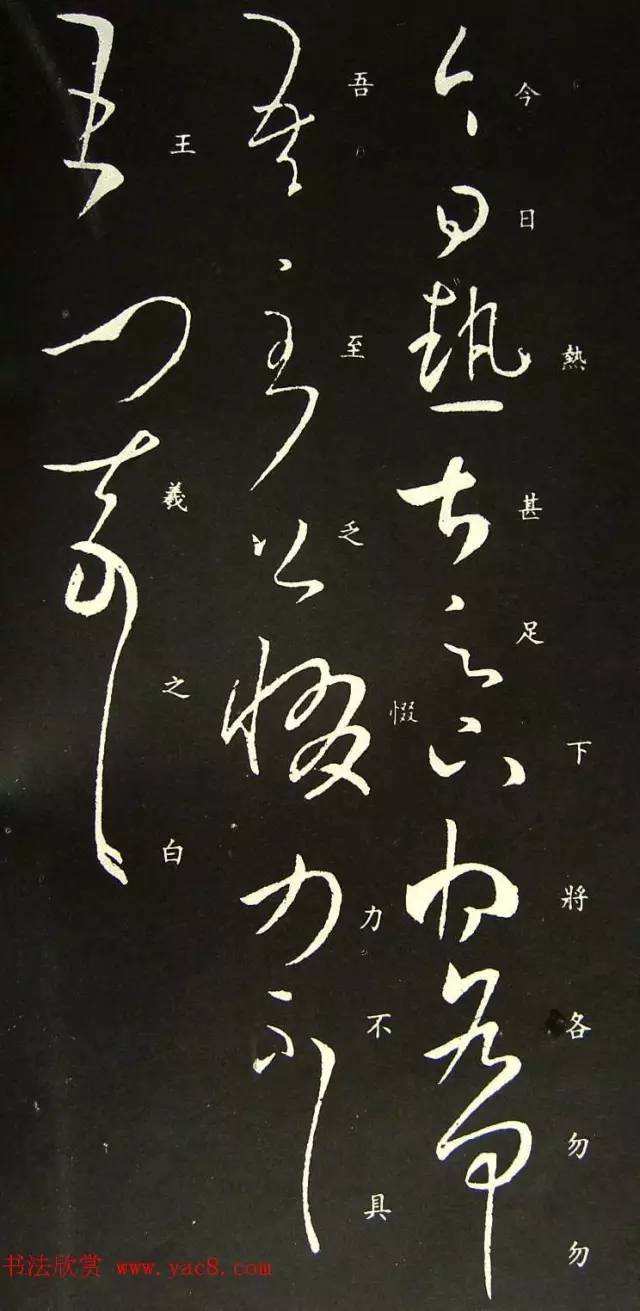 今日熱甚足下將各勿勿
吾至乏惙力不具
王羲之白
书法欣赏 www.yac8.com